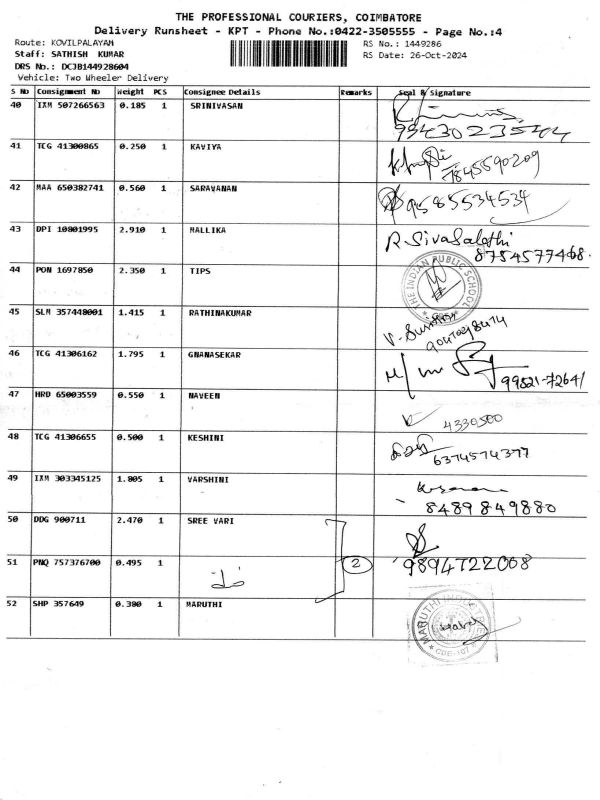 THE PROFESSIONAL COURIERS, COIMBATORE
Delivery Runsheet - KPT - Phone No.:0422-3505555 - Page No.:4
Route: KOVILPALAYAM
RS No.: 1449286
Staff: SATHISH KUMAR
RS Date: 26-Oct-2024
DRS No.: DCJB144928604
Vehicle: Two Wheeler Delivery
S No Consignment No Weight PCS Consignee Details Remarks Seal & Signature
40 IXM 507266563 0.185 1 SRINIVASAN
41 TCG 41300865 0.250 1 KAVIYA
7845590209
42 MAA 650382741 0.560 1 SARAVANAN
9585534534
43 DPI 10801995 2.910 1 MALLIKA
R. Sivasalathi
8754577468.
44 PON 1697850 2.350 1 TIPS
THE INDIAN PUBLIC SCHOOL
45 SLM 357448001 1.415 1 RATHINAKUMAR
46 TCG 41306162 1.795 1 GNANASEKAR
99821-72641
47 HRD 65003559 0.550 1 NAVEEN
4330500
48 TCG 41306655 0.500 1 KESHINI
6374574377
49 IXM 303345125 1.805 1 VARSHINI
8489849880
50 DDG 900711 2.470 1 SREE VARI
51 PNQ 757376700 0.495 1
2
9894722008
52 SHP 357649 0.380 1 MARUTHI
MARUTHI INDUSTRIES
CBE-107